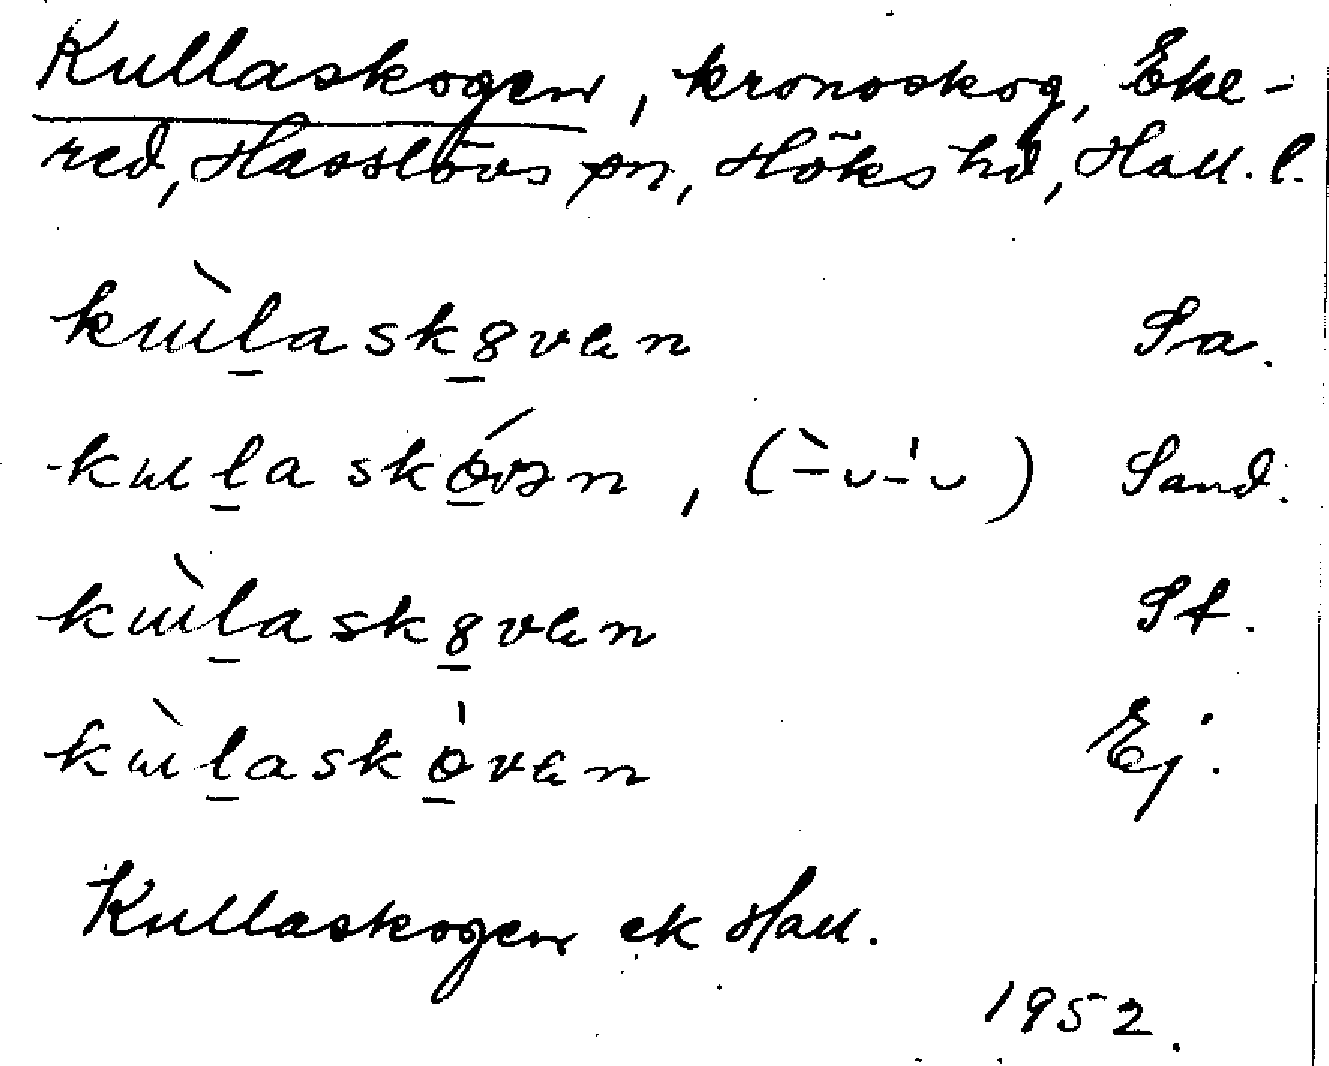 Kullaskogen, kronoskog, Eke-
red, Hasslövs sn, Höks hd, Hall. l.
kɯ̀l̠ask8̠vɐn Sa.
kɯl̠askó̠vən, (–̀ᴗ–̍ᴗ) Sand.
kɯ̀l̠ask8̠vɐn St.
kɯ̀l̠asko̠̍vɐn Ej.
Kullaskogen ek Hall.
1952.